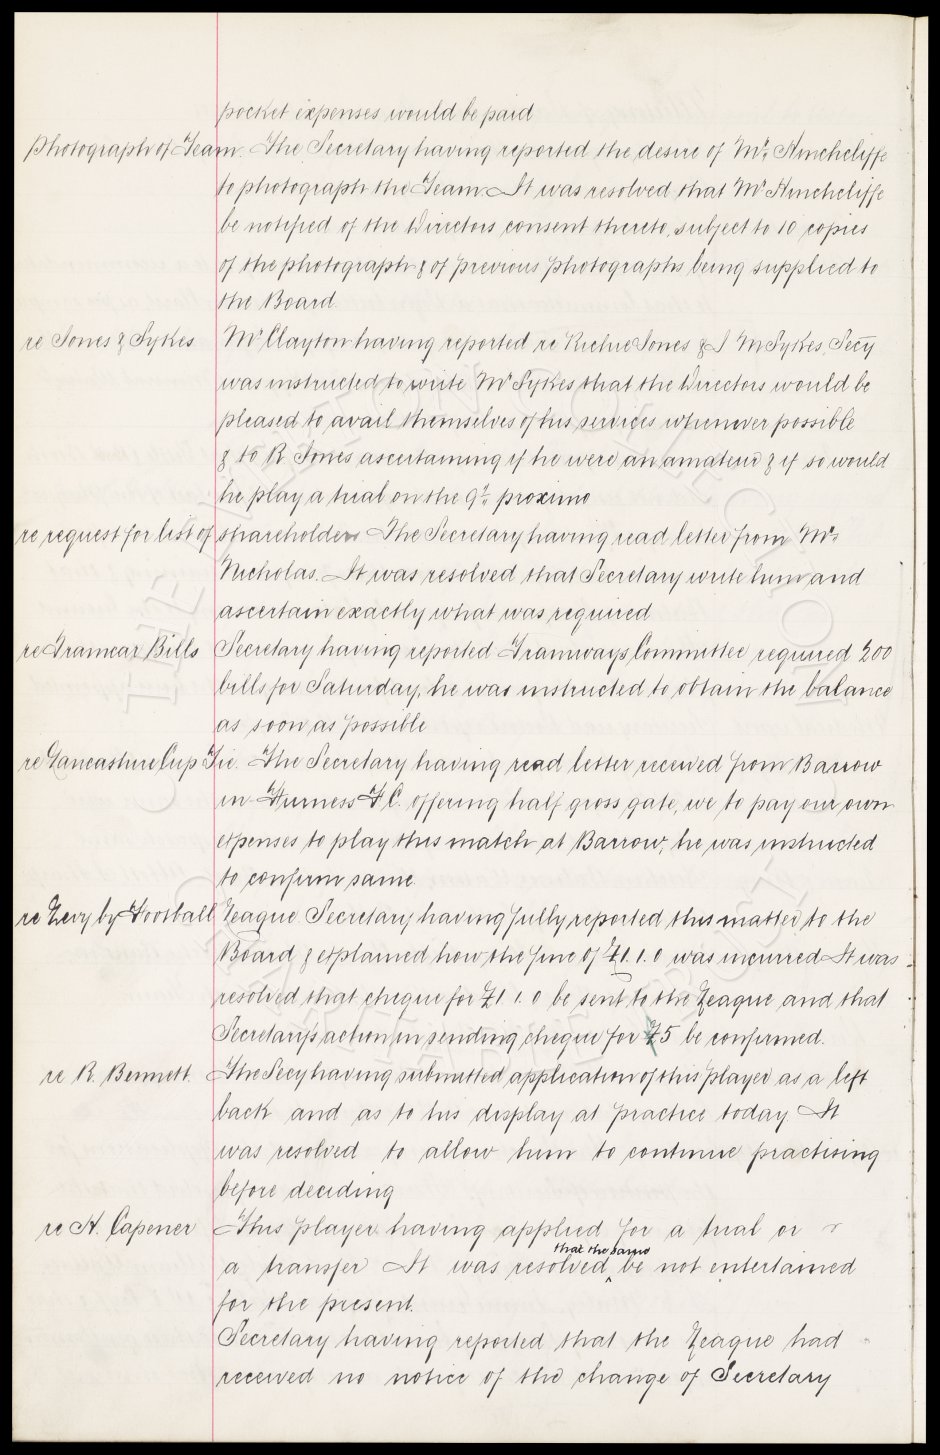 pocket expenses would be paid
Photograph of Team. The Secretary having reported the desire of Mr. Hinchcliffe
to photograph the Team. It was resolved that Mr Hinchcliffe
be notified of the Directors consent thereto, subject to 10 copies
of the photograph & of previous photographs being supplied to
the Board.
re Jones & Sykes Mr Clayton having reported re Richie Jones & J M Sykes, Secy
was instructed to write Mr Sykes that the Directors would be
pleased to avail themselves of his services whenever possible
& to R Jones ascertaining if he were an amateur & if so would
he play a trial on the 9th proximo
re request for list of shareholders The Secretary having read letter from Mr.
Nicholas. It was resolved that Secretary write him and
ascertain exactly what was required
re Tramcar Bills Secretary having reported Tramways Committee required 200
bills for Saturday, he was instructed to obtain the balance
as soon as possible
re Lancashire Cup Tie. The Secretary having read letter received from Barrow
in-Furness F.C. offering half gross gate, we to pay our own
expenses to play this match at Barrow, he was instructed
to confirm same.
re Levy by Football League Secretary having fully reported this matter to the
Board & explained how the fine of £1. 1. 0 was incurred It was
resolved that cheque for £1 1. 0 be sent to the League and that
Secretary's action in sending cheque for £5 be confirmed.
re R. Bennett. The Secy having submitted application of this player as a left
back and as to his display at practice today. It
was resolved to allow him to continue practising
before deciding
re H. Capener This player having applied for a trial or
a transfer It was resolved that the same be not entertained
for the present.
Secretary having reported that the League had
received no notice of the change of Secretary
THE EVERTON COLLECTION CHARITABLE TRUST